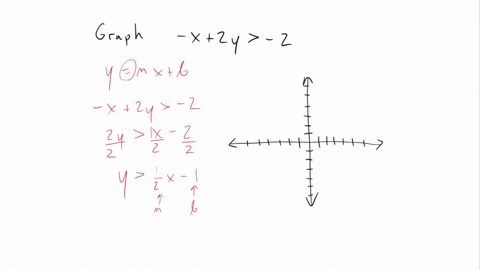 Graph -x+2y>-2
y=mx+b
-x+2y>-2
2y/2 > 1x/2 - 2/2
y > 1/2 x - 1
m b